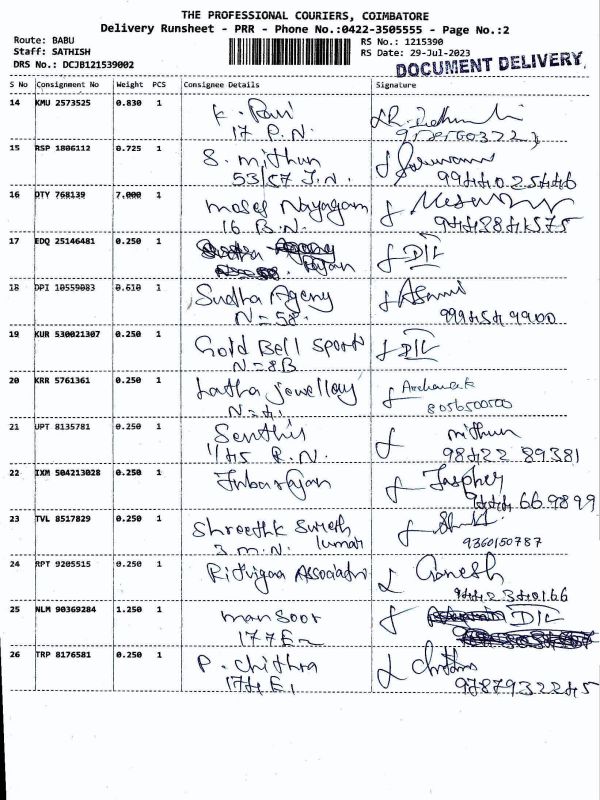 THE PROFESSIONAL COURIERS, COIMBATORE
Delivery Runsheet - PRR - Phone No.:0422-3505555 - Page No.:2
Route: BABU
Staff: SATHISH
DRS No.: DCJB121539002
RS No.: 1215390
RS Date: 29-Jul-2023
DOCUMENT DELIVERY
S No Consignment No Weight PCS Consignee Details Signature
14 KMU 2573525 0.830 1 K. Ravi
17 P.N.
15 RSP 1806112 0.725 1 S. mithun
53/57 J.N. 9944025446
16 DTY 768139 7.000 1 moses Nayagam
16 B.N. 9443841575
17 EDQ 25146481 0.250 1 DIL
Rajan
18 DPI 10559083 0.610 1 Sudha Ageny
N=58. 9994549900
19 KUR 530021307 0.250 1 Gold Bell Sports DIL
N=8B
20 KRR 5761361 0.250 1 Latha Jewellery
N=4. 8056500500
21 UPT 8135781 0.250 1 Senthil mithun
1/45 P.N. 98422 89381
22 IXM 504213028 0.250 1 Inbarajan Jaspher
944 66 9899
23 TVL 8517829 0.250 1 Shreethk Suresh
3 m.N. kumar 9360150787
24 RPT 9205515 0.250 1 Rithigaa Associates Ganesh
9442340166
25 NLM 90369284 1.250 1 mansoor DIL
177E2
26 TRP 8176581 0.250 1 P. Chithra Chithra
174 E1 9787932245